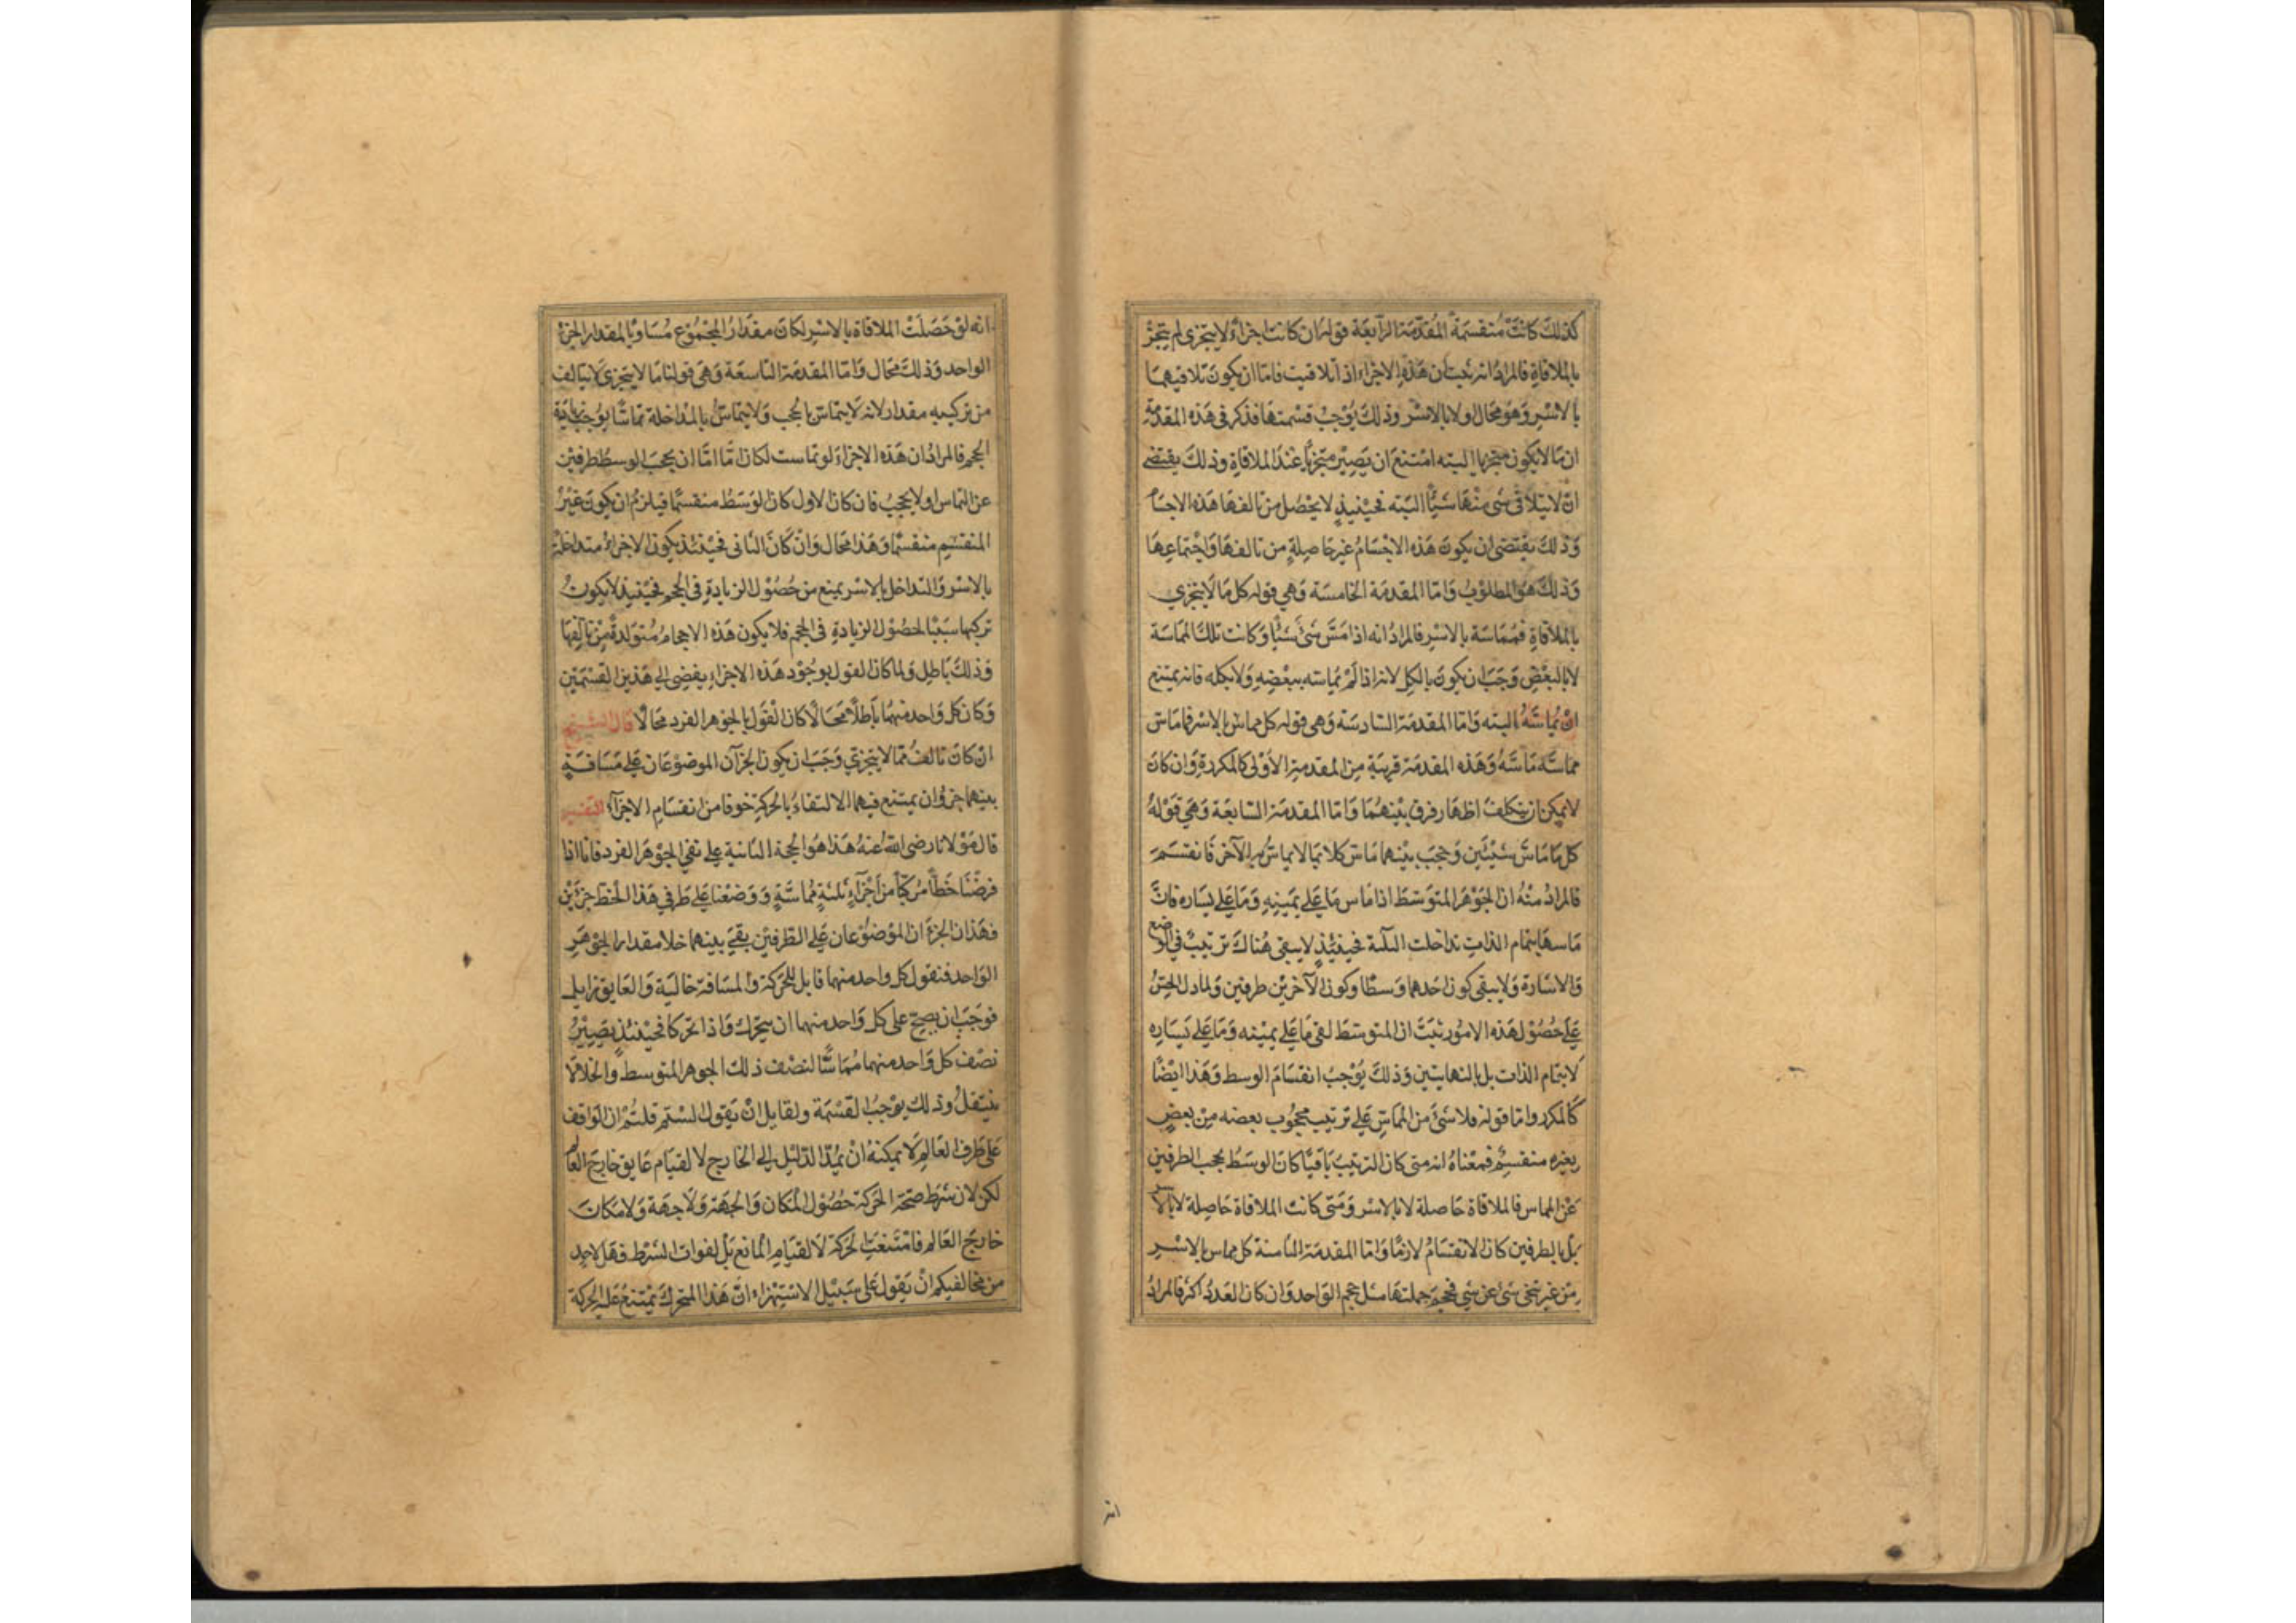 كذلك كانت منقسمة المقدمة الرابعة قوله ان كانت اجزاء لا يتجزى لم يتجز
بالملاقاة فالمراد انه ثبت ان هذه الاجزاء اذا تلاقيت فاما ان يكون تلاقيهما
بالاسر وهو محال اولا بالاسر وذلك يوجب قسمتها فذكر فى هذه المقدمة
ان ما لا يكون متجزيا البته امتنع ان يصير متجزيا عند الملاقاة وذلك يقتضى
ان لا يتلاقى شى منها شيأ البته فحينيذ لا يحصل من تالفها هذه الاجسام
وذلك يقتضى ان يكون هذه الاجسام غير حاصلة من تالفها واجتماعها
وذلك هو المطلوب واما المقدمة الخامسة وهي قوله كل ما لا يتجزي
بالملاقاة فمماسة بالاسر فالمراد انه اذا مس شئ شيأ وكانت تلك المماسة
لا بالبعض وجب ان يكون بالكل لانه اذا لم يماسه ببعضه ولا بكله فانه يمتنع
ان يماسه البته واما المقدمة السادسة وهى قوله كل مماس بالاسر فما ماس
مماسه ماسه وهذه المقدمة قريبة من المقدمة الاولى كالمكررة وان كان
لا يمكن ان يتكلف اظهار فرق بينهما واما المقدمة السابعة وهي قوله
كل ما ماس شيئين وحجب بينهما ماس كلا بما لا يماس به الآخر فانقسم
فالمراد منه ان الجوهر المتوسط اذا ماس ما على يمينه وما على يساره فان
ماسها بتمام الذات تداخلت الثلثة فحينئذ لا يبقى هناك ترتيب في الوضع
والاشارة ولا يبقى كون احدهما وسطا وكون الآخرين طرفين ولما دل الحس
على حصول هذه الامور ثبت ان المتوسط لقى ما على يمينه وما على يساره
لا بتمام الذات بل بالنهايتين وذلك يوجب انقسام الوسط وهذا ايضا
كالمكرر واما قوله فلا شئ من المماس على ترتيب محجوب بعضه من بعض
بغيره منقسم فمعناه انه متى كان الترتيب باقيا كان الوسط يحجب الطرفين
عن المماس فالملاقاة حاصلة لا بالاسر ومتى كانت الملاقاة حاصلة لا بالاسر
بل بالطرفين كان الانقسام لازما واما المقدمة الثامنة كل مماس بالاسر
من غير تنحى شئ عن شي فحجم جملتها مثل حجم الواحد وان كان العدد اكثر فالمراد
انه
انه لو حصلت الملاقاة بالاسر لكان مقدار المجموع مساويا لمقدار الجزء
الواحد وذلك محال واما المقدمة التاسعة وهى قولنا ما لا يتجزى لا يتالف
من تركيبه مقدار لانه لا يتماس بالحجب ولا يتماس بالمداخلة تماسا يوجب زيادة
الحجم فالمراد ان هذه الاجزاء لو تماست لكان اما ان يحجب الوسط طرفين
عن التماس او لا يحجب فان كان الاول كان الوسط منقسما فيلزم ان يكون غير
المنقسم منقسما وهذا محال وان كان الثانى فحينئذ يكون الاجزاء متداخلة
بالاسر والتداخل بالاسر يمنع من حصول الزيادة فى الحجم فحينيذ لا يكون
تركبها سببا لحصول الزيادة فى الحجم فلا يكون هذه الاحجام متولدة من تالفها
وذلك باطل ولما كان القول بوجود هذه الاجزاء يفضى الى هذين القسمين
وكان كل واحد منهما باطلا محالا كان القول بالجوهر الفرد محالا قال الشيخ
ان كان تالف مما لا يتجزي وجب ان يكون الجزآن الموضوعان على مسافة
بينهما جزء وان يمتنع فيهما الالتقاء بالحركة خوفا من انقسام الاجزآء التفسير
قال مولانا رضى الله عنه هذا هو الحجة الثانية على نفي الجوهر الفرد فانا اذا
فرضنا خطا مركبا من اجزآء ثلثة مماسة ووضعنا على طرفي هذا الخط جزءين
فهذان الجزءان الموضوعان على الطرفين بقي بينهما خلا مقدار الجوهر
الواحد فنقول كل واحد منهما قابل للحركة والمسافة خالية والعايق زايل
فوجب ان يصح على كل واحد منهما ان يتحرك واذا تحركا فحينئذ يصير
نصف كل واحد منهما مماسا لنصف ذلك الجوهر المتوسط والخلا لا
ينتقل وذلك يوجب القسمة ولقايل ان يقول الستم قلتم ان الواقف
على طرف العالم لا يمكنه ان يمد اليد الى الخارج لا لقيام عايق خارج العالم
لكن لان شرط صحة الحركة حصول المكان والجهة ولا جهة ولا مكان
خارج العالم فامتنعت الحركة لا لقيام المانع بل لفوات الشرط فهل لاحد
من مخالفيكم ان يقول على سبيل الاستهزاء ان هذا المتحرك يمتنع عليه الحركة